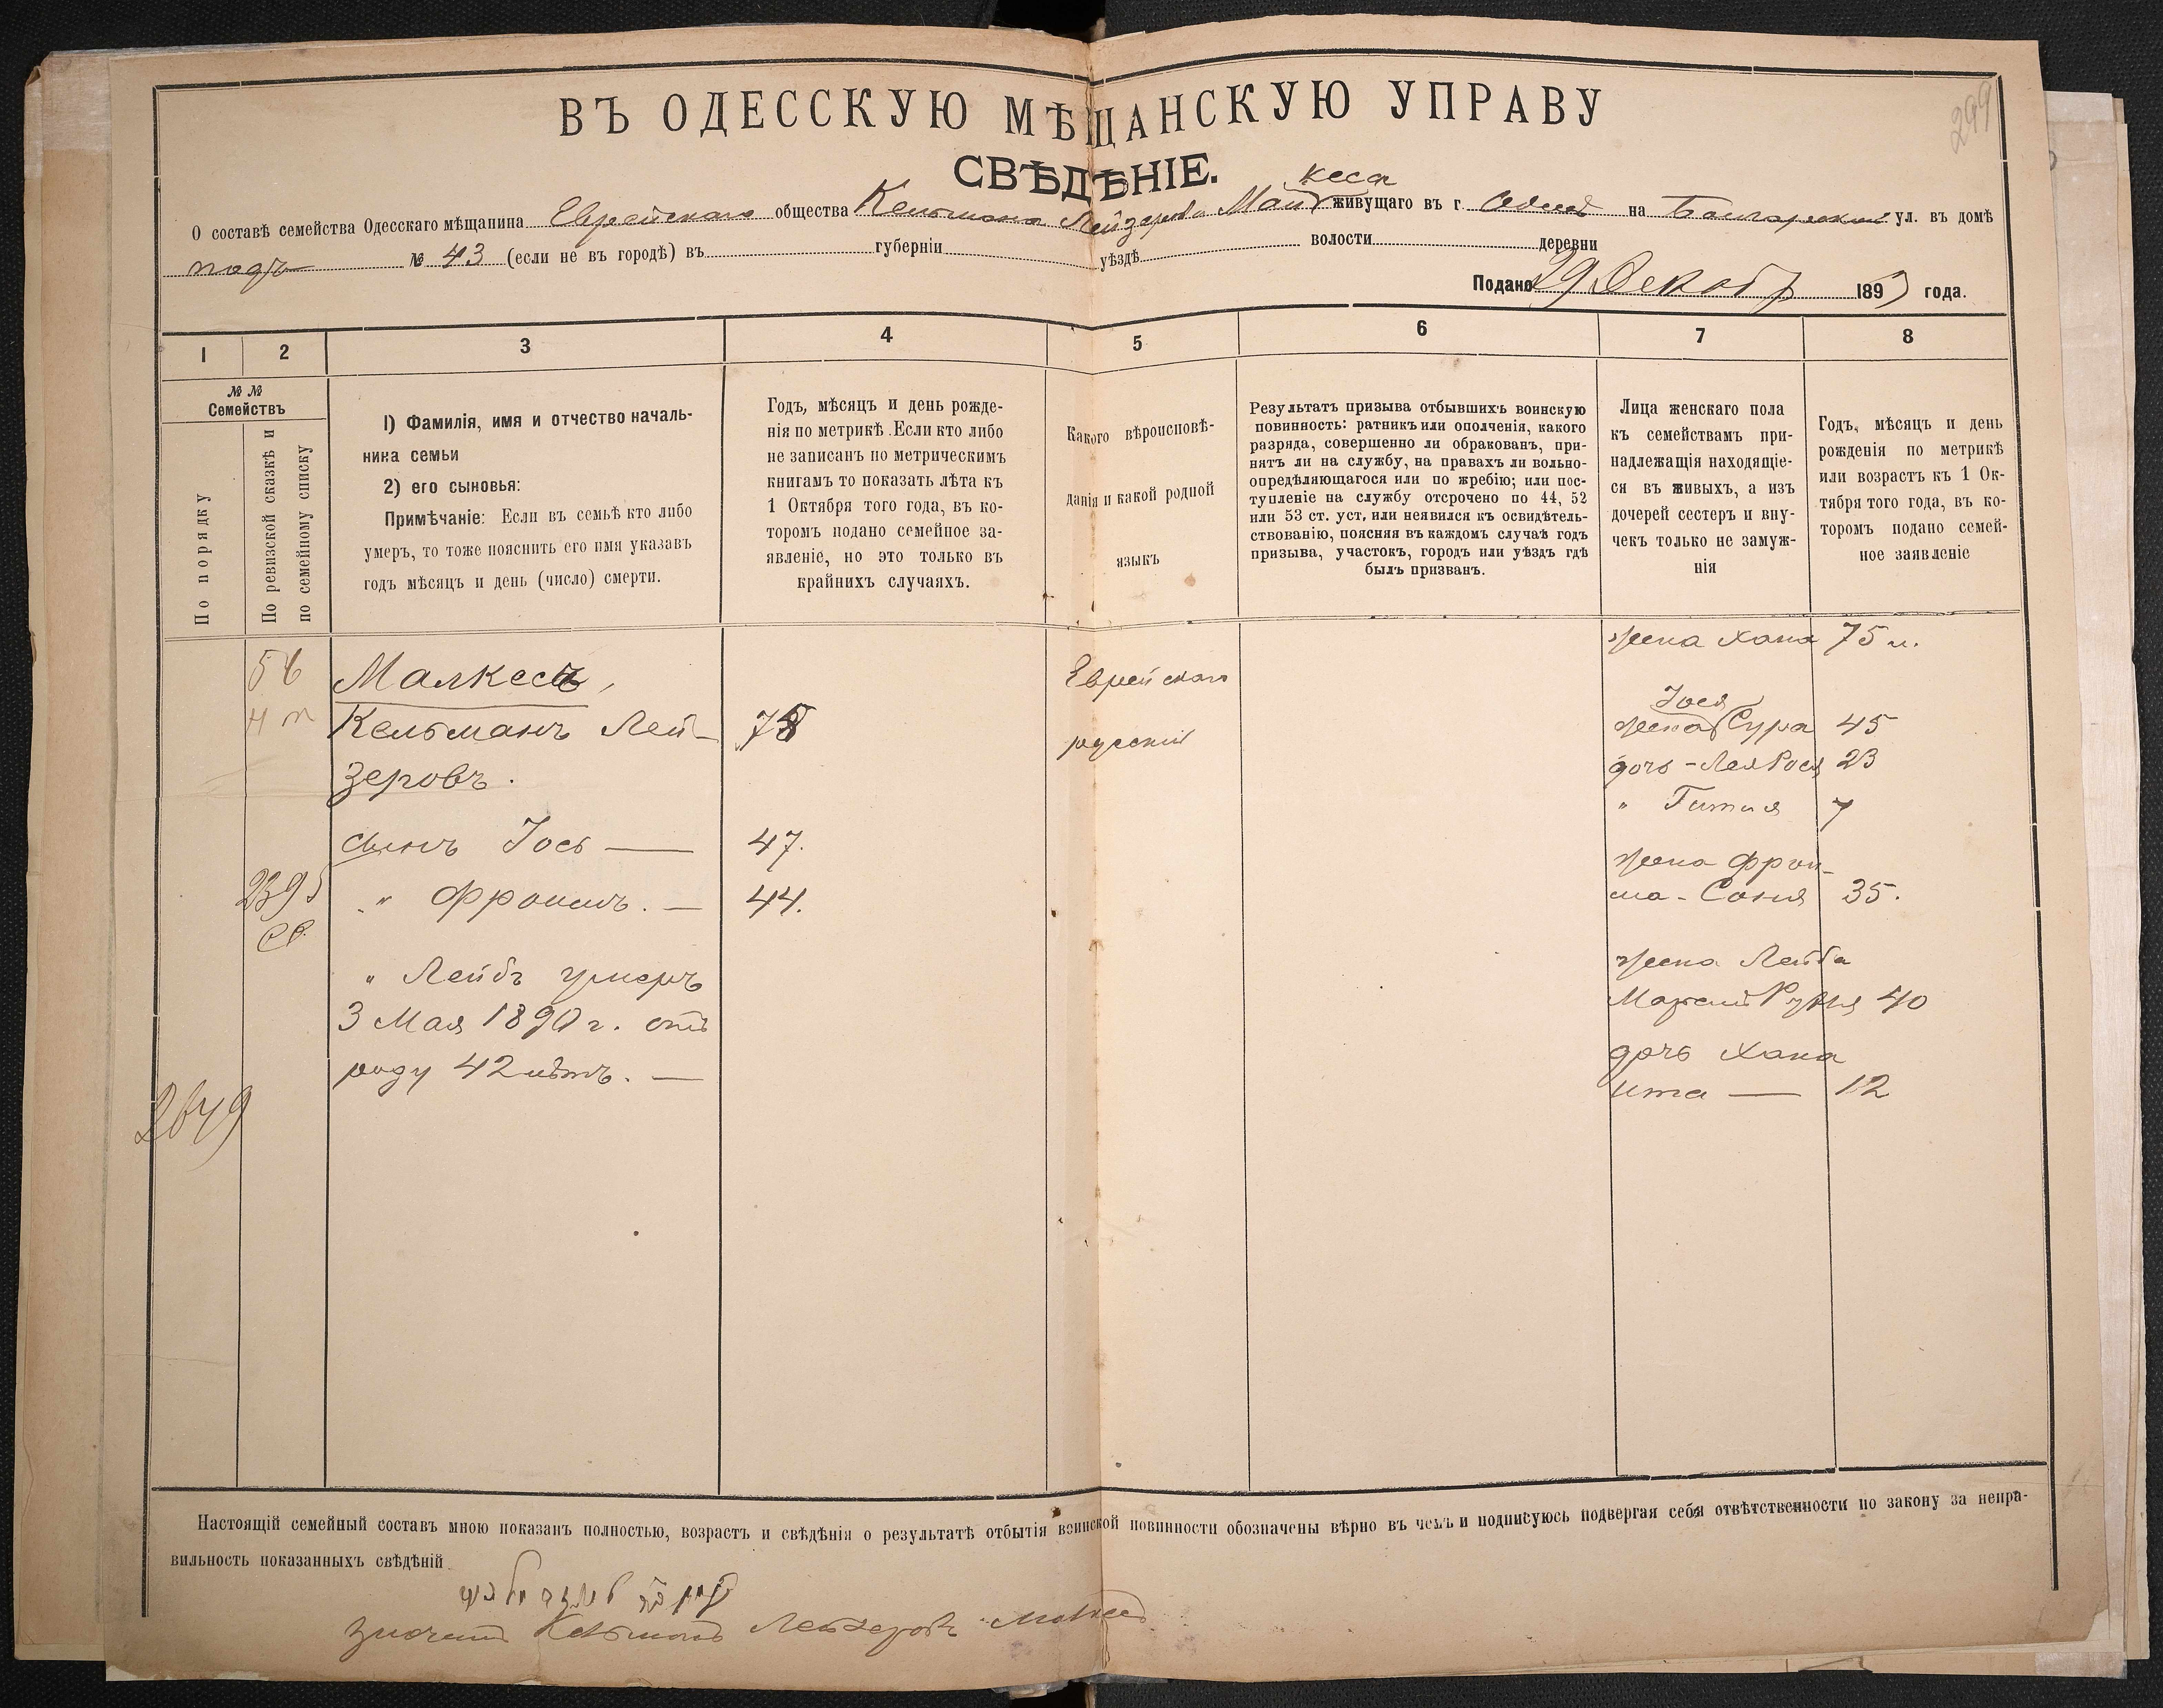 299
ВЪ ОДЕССКУЮ МѢЩАНСКУЮ УПРАВУ
СВѢДѢНІЕ.
кеса
О составѣ семейства Одесскаго мѣщанина Еврейскаго общества Кельмана Лейзерова Мал живущаго въ г. Одессѣ на Болгарской ул. въ домѣ
подъ № 43 (если не въ городѣ) въ губерніи уѣздѣ волости деревни
Подано 29 Декабр 189 года.
1 2 3 4 5 6 7 8
№ №
Семействъ
По порядку
По ревизской сказкѣ и
по семейному списку
1) Фамилія, имя и отчество началь-
ника семьи
2) его сыновья:
Примѣчаніе: Если въ семьѣ кто либо
умеръ, то тоже пояснить его имя указавъ
годъ мѣсяцъ и день (число) смерти.
Годъ, мѣсяцъ и день рожде-
нія по метрикѣ. Если кто либо
не записанъ по метрическимъ
книгамъ то показать лѣта къ
1 Октября того года, въ ко-
торомъ подано семейное за-
явленіе, но это только въ
крайнихъ случаяхъ.
Какого вѣроисповѣ-
данія и какой родной
языкъ
Результатъ призыва отбывшихъ воинскую
повинность: ратникъ или ополченія, какого
разряда, совершенно ли обракованъ, при-
нятъ ли на службу, на правахъ ли вольно-
опредѣляющагося или по жребію; или пос-
тупленіе на службу отсрочено по 44, 52
или 53 ст. уст, или неявился къ освидѣтель-
ствованію, поясняя въ каждомъ случаѣ годъ
призыва, участокъ, городъ или уѣздъ гдѣ
былъ призванъ.
Лица женскаго пола
къ семействамъ при-
надлежащія находящіе-
ся въ живыхъ, а изъ
дочерей сестеръ и вну-
чекъ только не замуж-
нія
Годъ, мѣсяцъ и день
рожденія по метрикѣ
или возрастъ къ 1 Ок-
тября того года, въ ко-
торомъ подано семей-
ное заявленіе
жена Хана 75 л.
Малкесъ, Еврейскаго
Кельманъ Лей- 78 русскій
зеровъ.
Іося
жена Сура 45
дочь - Лея Рося 23
" Гитля 7
сынъ Іось — 47.
жена Фрои-
2395 " Фроимъ. — 44.
ма - Соня 35.
" Лейбъ умеръ
жена Лейба
3 Мая 1890 г. отъ
40
роду 42 лѣтъ. —
дочь Хана
ита — 12
2649
Настоящій семейный составъ мною показанъ полностью, возрастъ и свѣдѣнія о результатѣ отбытія воинской повинности обозначены вѣрно въ чемъ и подписуюсь подвергая себя отвѣтственности по закону за непра-
вильность показанныхъ свѣдѣній
Кельманъ Лейзеровъ Малкес